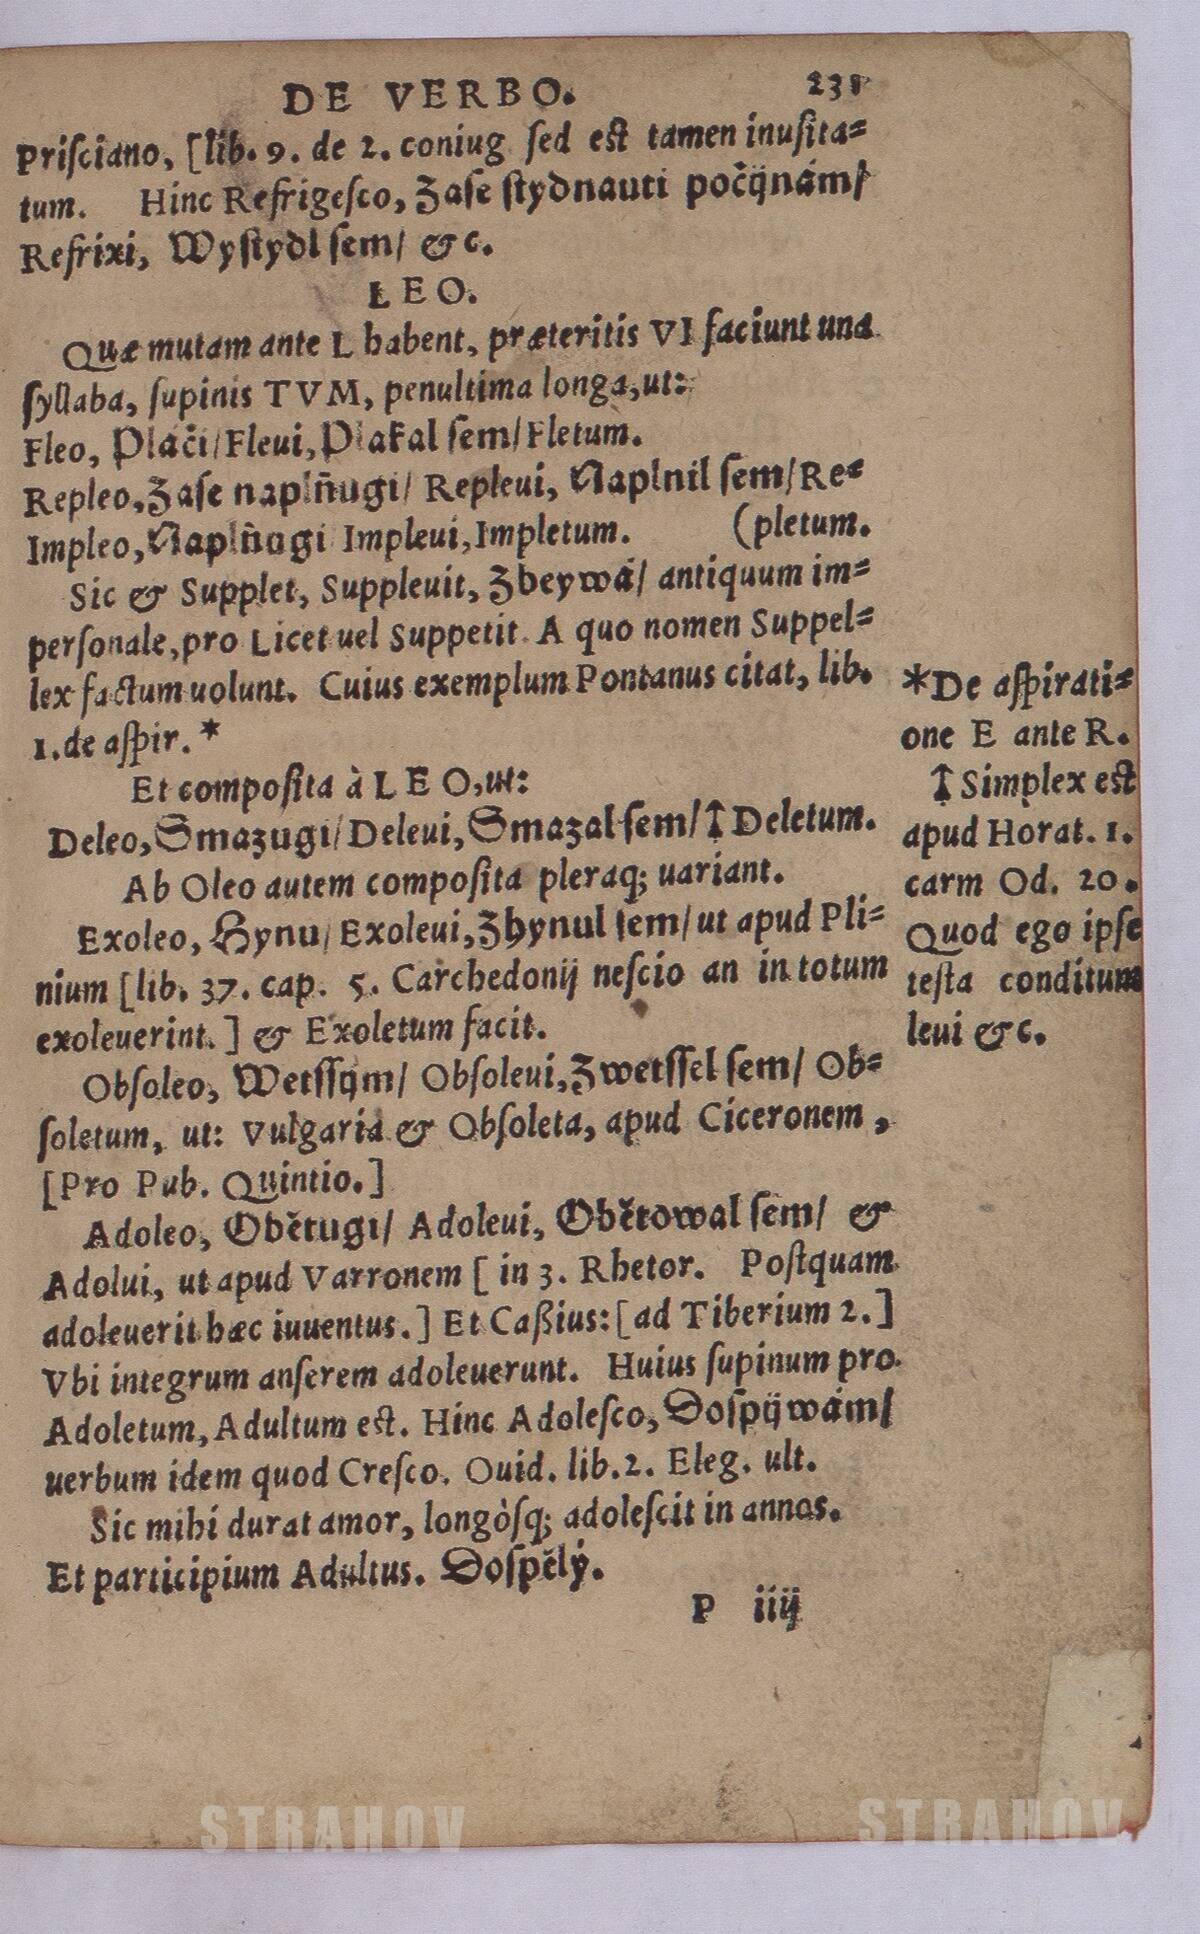 DE VERBO. 231
Prisciano, [lib. 9. de 2. coniug sed est tamen inusita=
tum. Hinc Refrigesco, Zase stydnauti počijnám/
Refrixi, Wystydl sem/ &c.
LEO.
Quæ mutam ante L habent, præteritis VI faciunt una
syllaba, supinis TVM, penultima longa, ut:
Fleo, Plači/ Fleui, Plakal sem/ Fletum.
Repleo, Zase naplňugi/ Repleui, Naplnil sem/ Re=
Impleo, Naplňugi Impleui, Impletum. (pletum.
Sic & Supplet, Suppleuit, Zbeywá/ antiquum im=
personale, pro Licet uel Suppetit. A quo nomen Suppel=
lex factum uolunt. Cuius exemplum Pontanus citat, lib.
1. de aspir. *
Et composita à LEO, ut:
Deleo, Smazugi/ Deleui, Smazal sem/ ↥ Deletum.
Ab Oleo autem composita pleraq; uariant.
Exoleo, Hynu/ Exoleui, Zhynul sem/ ut apud Pli=
nium [lib. 37. cap. 5. Carchedonij nescio an in totum
exoleuerint.] & Exoletum facit.
Obsoleo, Wetssijm/ Obsoleui, Zwetssel sem/ Ob=
soletum, ut: Vulgaria & Obsoleta, apud Ciceronem,
[Pro Pub. Quintio.]
Adoleo, Obětugi/ Adoleui, Obětowal sem/ &
Adolui, ut apud Varronem [ in 3. Rhetor. Postquam
adoleuerit hæc iuuentus.] Et Caßius: [ad Tiberium 2.]
Vbi integrum anserem adoleuerunt. Huius supinum pro
Adoletum, Adultum est. Hinc Adolesco, Dospijwám/
uerbum idem quod Cresco. Ouid. lib. 2. Eleg. ult.
Sic mihi durat amor, longòsq; adolescit in annos.
Et participium Adultus. Dospělý.
P iiij
*De aspirati=
one E ante R.
↥ Simplex est
apud Horat. 1.
carm Od. 20.
Quod ego ipse
testa conditum
leui &c.
STRAHOV STRAHOV